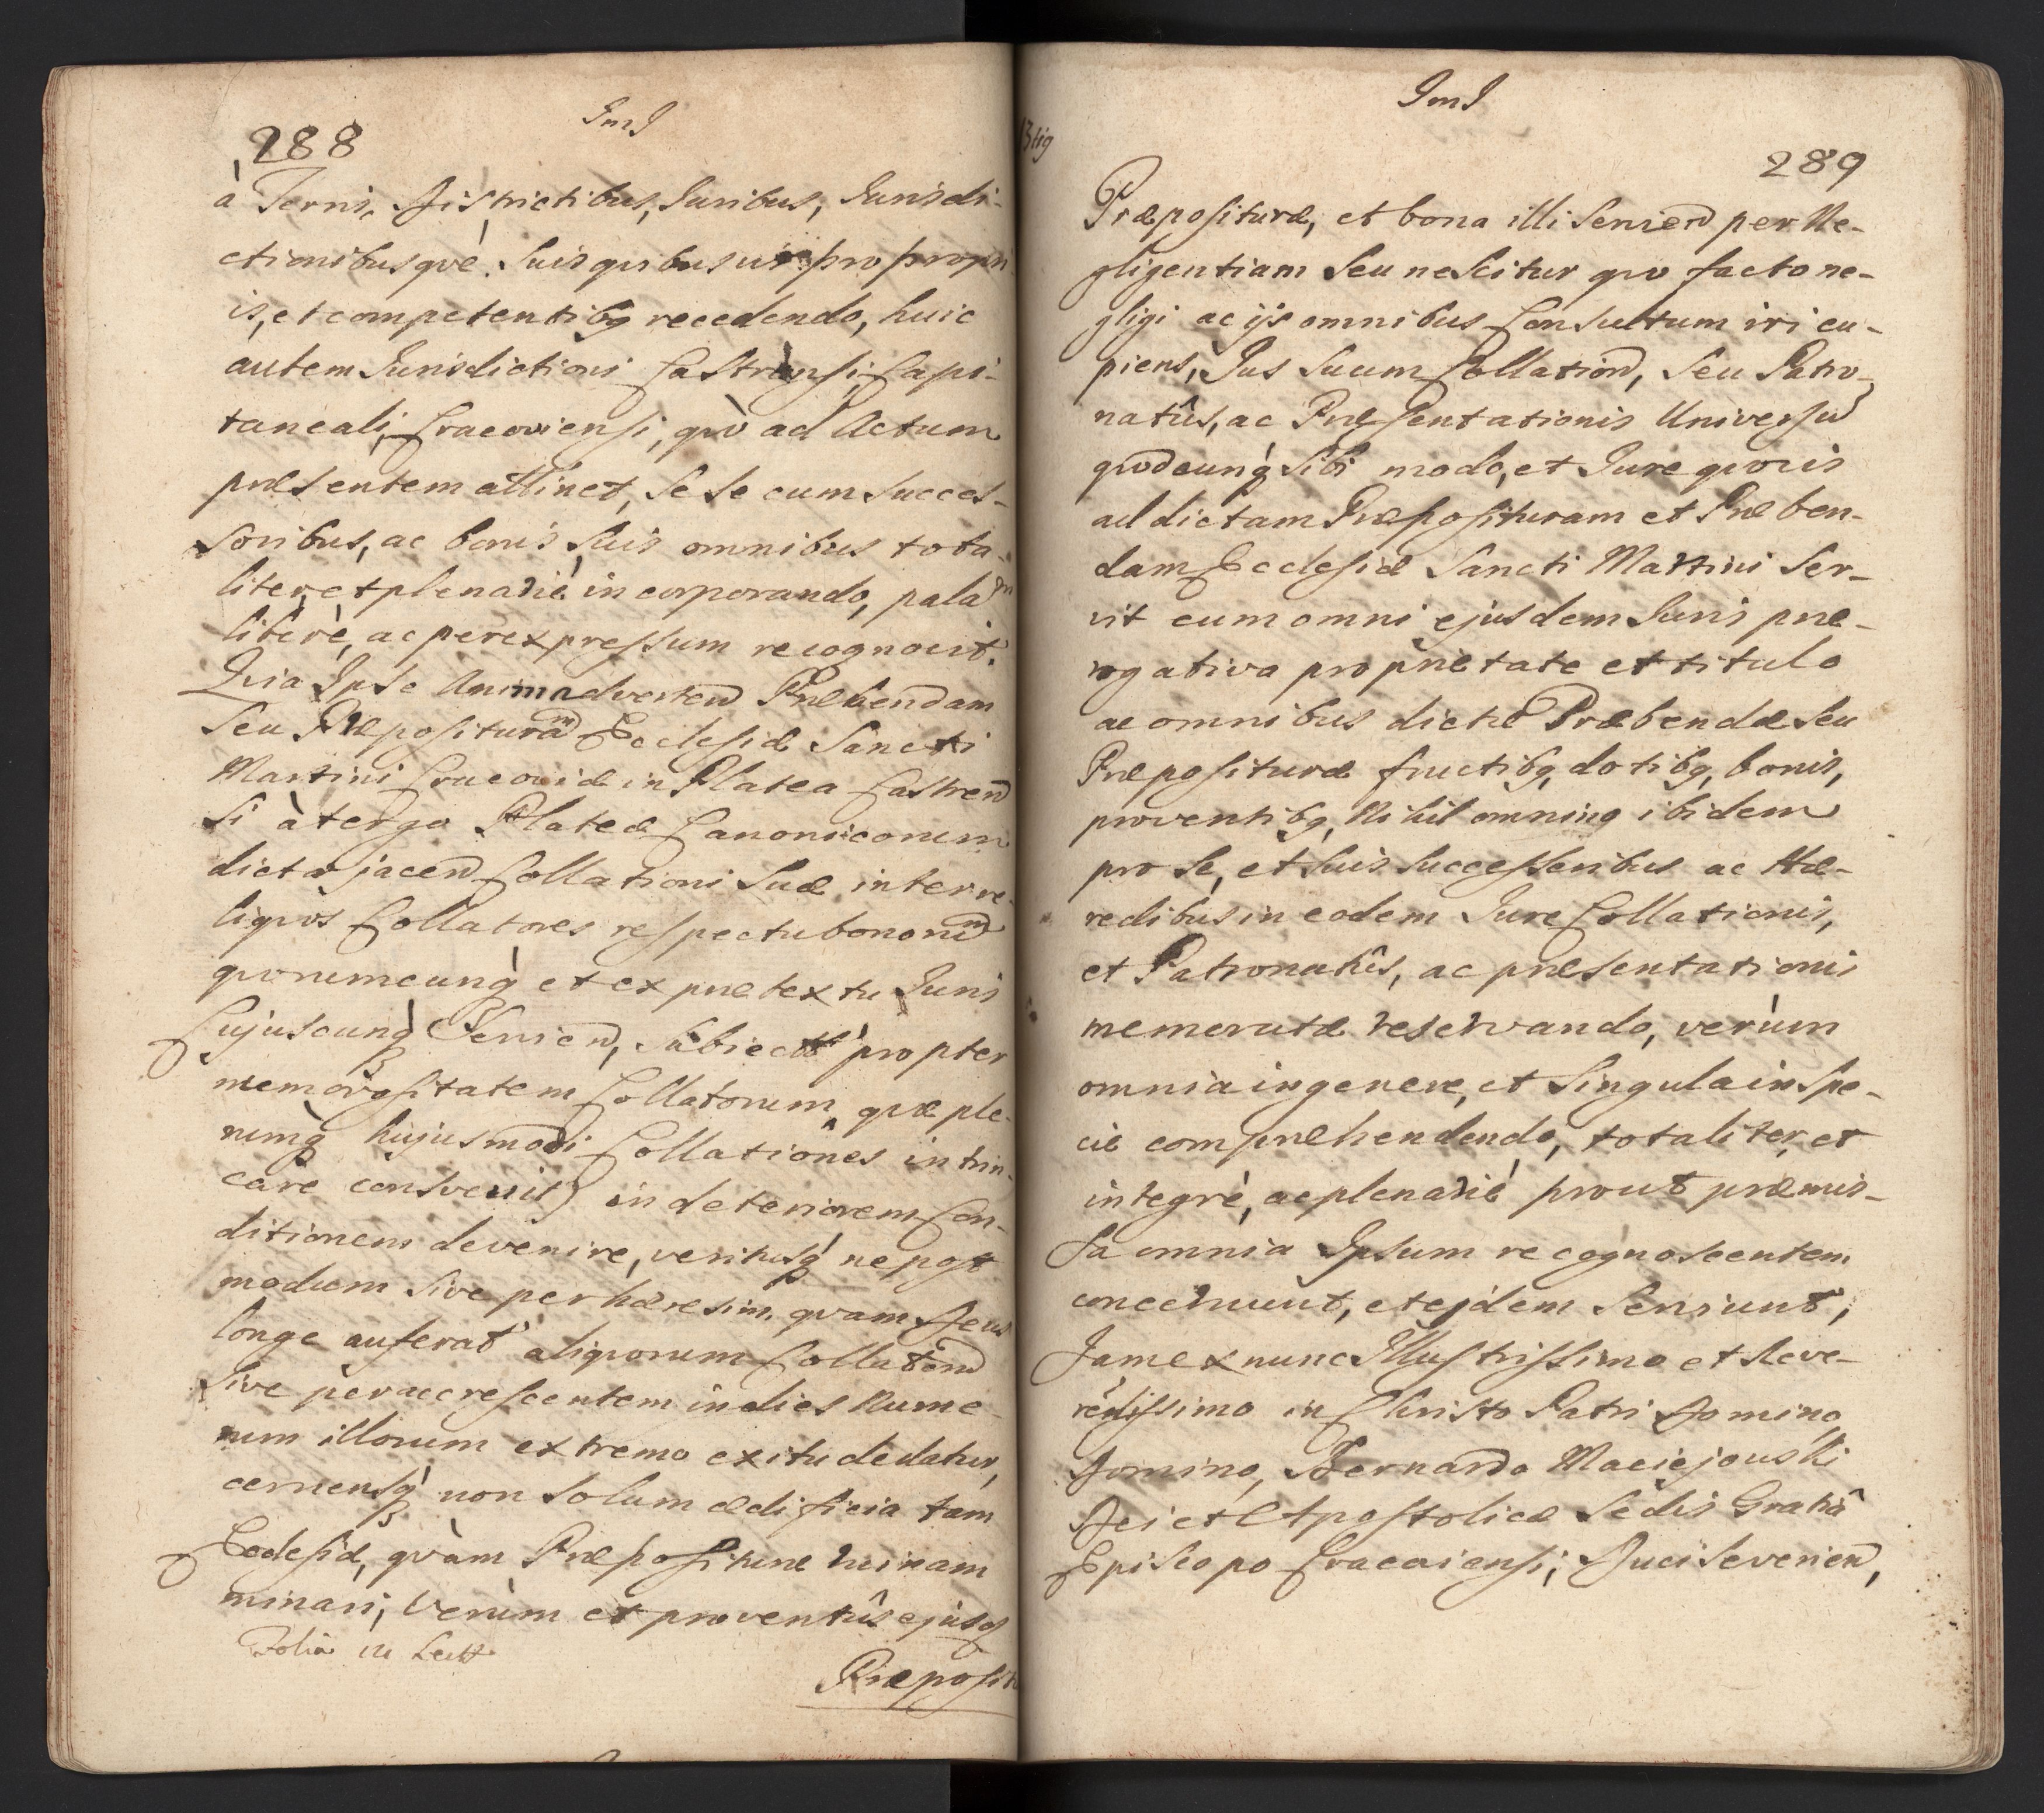 288
JmJ
à Terris, Districtibus, Juribus, Jurisdi-
ctionibusqve, Suis qvibusvis pro propri
is, et competentibq recedendo, huic
autem Jurisdictioni Castrensi, Capi-
taneali, Cracoviensi, qvò ad Actum
præsentem attinet, Se Se cum Succes-
soribus, ac bonis Suis omnibus tota-
liter, et plenariè incorporando, palam
liberè, ac per expressum recognovit.
Qvia Ipse Animadverten Præbendam
Seu Præposituram Ecclesiæ Sancti
Martini Cracoviæ in Platea Castren
si à tergo Plateæ Canonicorum
dicta jacen Collationi Suæ inter re-
liqvos Collatores respectu bonorum
qvorumcunq̀ et ex prætextu Juris
Cujuscunq̀ Servien, Subiectã propter
memorositatem Collatorum, qvæ ple-
rumq̀ hujusmodi Collationes intrin-
care consvevit) in deteriorem Con-
ditionem devenire, veritusq̀ ne post
modum Sive per hæresim, qvam Deus
longe auferat aliqvorum Collatorũ
Sive per accrescentem in dies Nume-
rum illorum extremo exitu dedatur,
cernensq̀ non Solum ædificia tam
Ecclesiæ, qvàm Præposituræ ruinam
minari, Verùm et proventûs ejusd
Folia in
Præposit
JmJ
289
Præposituræ, et bona illi Servien per Ne-
gligentiam Seu neScitur qvo facto ne-
gligi ac ijs omnibus Consultum iri cu-
piens, Jus Suum Collation, Seu Patro-
natûs, ac Præsentationis Universũ
qvodcunq̀ Sibi modo, et Jure qvovis
ad dictam Præposituram et Præben-
dam Ecclesiæ Sancti Martini Ser-
vit cum omni ejusdem Juris præ-
rogativa proprietate et titulo
ac omnibus dictæ Præbendæ Seu
Præposituræ fructibq, dotibq, bonis,
proventibq, Nihil omninq ibidem
pro Se, et Suis Successoribus ac Hæ-
redibus in eodem Jure Collationis,
et Patronatûs, ac præsentationis
memoratæ reservando, verùm
omnia in genere, et Singula in Spe-
cie compræhendendo, totaliter, et
integrè, ac plenariè prout præmis-
sa omnia Ipsum recognoscentem
concernunt, et ejdem Serviunt,
Jam ex nunc Illustrissimo et Reve-
rendissimo in Christo Patri Domino
Domino, Bernardo Maciejouski
Dei et Apostolicæ Sedis Gratiâ
Episcopo Cracoviensi, Duci Severien,